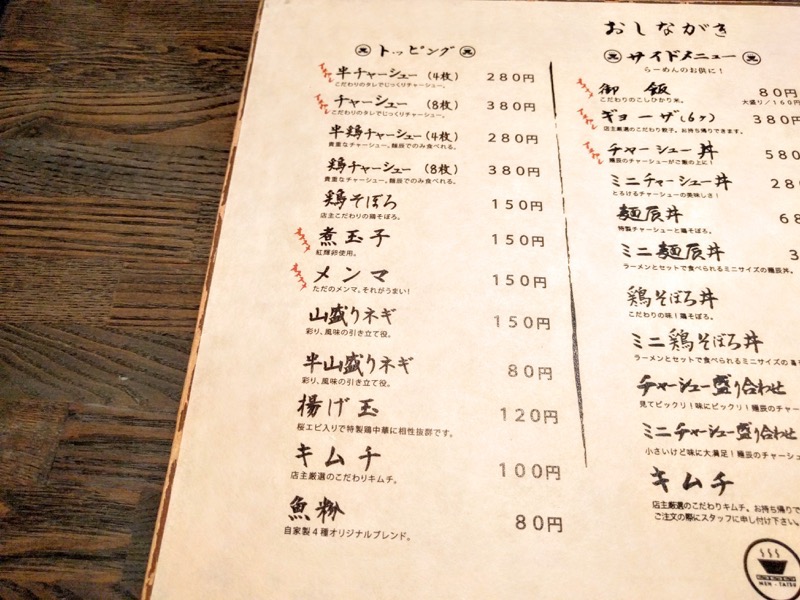 おしながき
㊋ トッピング ㊋
オススメ
半チャーシュー(4枚) 280円
こだわりのタレでじっくりチャーシュー。
オススメ
チャーシュー (8枚) 380円
こだわりのタレでじっくりチャーシュー。
半鶏チャーシュー(4枚) 280円
貴重なチャーシュー。麺辰でのみ食べれる。
鶏チャーシュー (8枚) 380円
貴重なチャーシュー。麺辰でのみ食べれる。
鶏そぼろ 150円
店主こだわりの鶏そぼろ。
オススメ
煮玉子 150円
紅輝卵使用。
オススメ
メンマ 150円
ただのメンマ。それがうまい!
山盛りネギ 150円
彩り、風味の引き立て役。
半山盛りネギ 80円
彩り、風味の引き立て役。
揚げ玉 120円
桜エビ入りで特製鶏中華に相性抜群です。
キムチ 100円
店主厳選のこだわりキムチ。
魚粉 80円
自家製4種オリジナルブレンド。
サイドメニュー
らーめんのお供に!
オススメ
御飯 80円
こだわりのこしひかり米。 大盛り/160円
オススメ
ギョーザ(6ヶ) 380円
店主厳選のこだわり餃子。お持ち帰りできます。
オススメ
チャーシュー丼 580
麺辰のチャーシューがご飯の上に!
ミニチャーシュー丼 28
とろけるチャーシューの美味しさ!
麺辰丼 68
特製チャーシューと鶏そぼろ。
ミニ麺辰丼 3
ラーメンとセットで食べられるミニサイズの麺辰丼。
鶏そぼろ丼
こだわりの味!鶏そぼろ。
ミニ鶏そぼろ丼
ラーメンとセットで食べられるミニサイズの
チャーシュー盛り合わせ
見てビックリ!味にビックリ!麺辰のチャー
ミニチャーシュー盛り合わせ
小さいけど味に大満足!麺辰のチャーシュ
キムチ
店主厳選のこだわりキムチ。お持ち帰りで
ご注文の際にスタッフに申し付け下さい。
MEN - TATSU